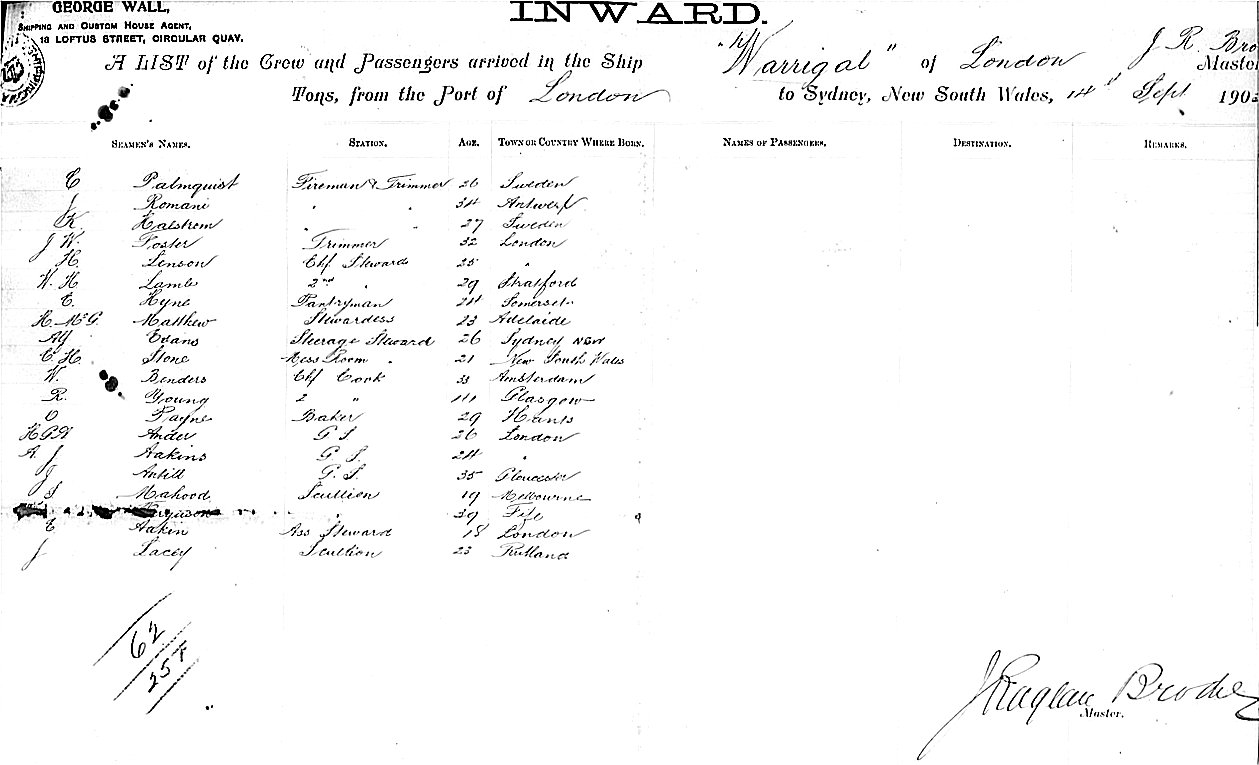 GEORGE WALL,
SHIPPING AND CUSTOM HOUSE AGENT,
18 LOFTUS STREET, CIRCULAR QUAY.
INWARD.
A LIST of the Crew and Passengers arrived in the Ship "Warrigal" of London J R Bro Master
Tons, from the Port of London to Sydney, New South Wales, 14th Sept 190
SEAMEN'S NAMES. STATION. AGE. TOWN OR COUNTRY WHERE BORN. NAMES OF PASSENGERS. DESTINATION. REMARKS.
C Palmquist Fireman & Trimmer 26 Sweden
J Romani " " 34 Antwerp
K Halstrom " " 27 Sweden
J W. Foster Trimmer 32 London
H. Lenson Chf Steward 25 "
W. H Lamb 2nd " 29 Stratford
E. Hyne Pantryman 24 Somerset
H. McG. Matthew Stewardess 23 Adelaide
Evans Steerage Steward 26 Sydney NSW
C H. Stone Mess Room " 21 New South Wales
W. Benders Chf Cook 33 Amsterdam
R. Young 2 " Glasgow
C Payne Baker 29 Hants
Ander G S 26 London
A. J Aakins G. S. 24 "
J Antill G. S. 35 Gloucester
S Mahood Scullion 19 Melbourne
Ferguson " 39 Fife
E Aakin Ass Steward 18 London
J Lacey Scullion 23 Rutland
62
257
J Raglan Brodie
Master.